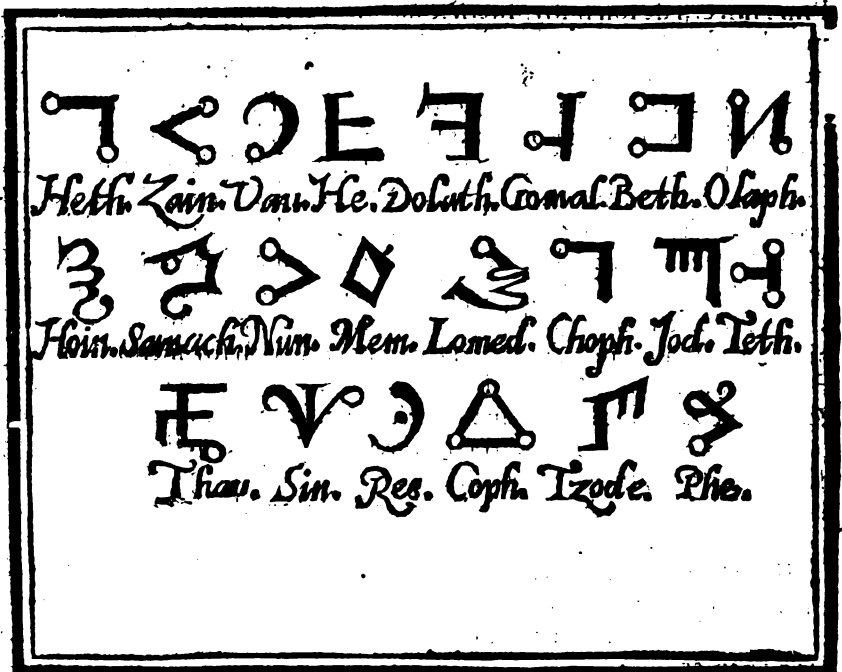 Heth. Zain. Vau. He. Doluth. Gomal. Beth. Olaph.
Hoin. Samach. Nun. Mem. Lomed. Choph. Jod. Teth.
Thau. Sin. Res. Coph. Tzode. Phe.